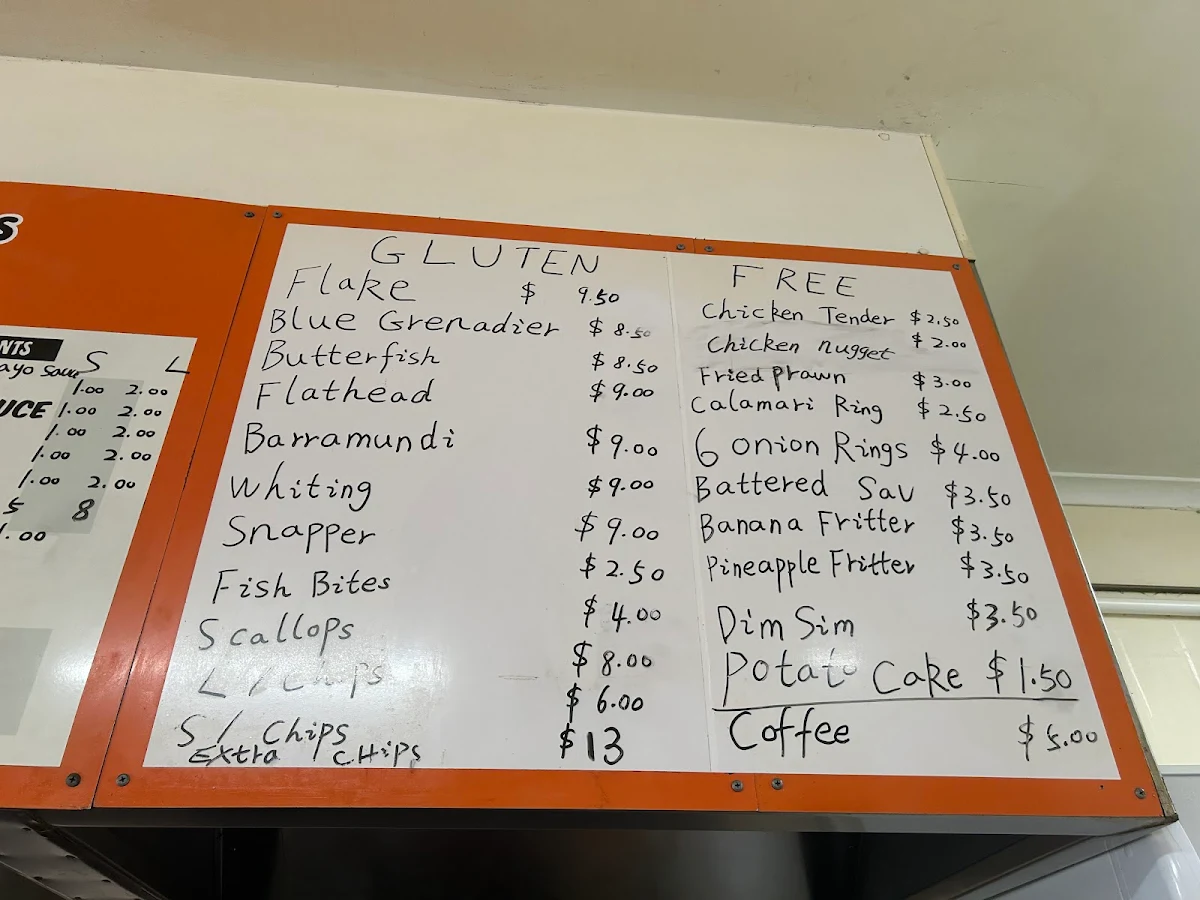 S
NTS
ayo Sauce S L
1.00 2.00
UCE 1.00 2.00
1.00 2.00
1.00 2.00
1.00 2.00
5 8
1.00
GLUTEN
Flake $ 9.50
Blue Grenadier $ 8.50
Butterfish $ 8.50
Flathead $ 9.00
Barramundi $ 9.00
Whiting $ 9.00
Snapper $ 9.00
Fish Bites $ 2.50
Scallops $ 4.00
L / Chips $ 8.00
S / Chips $ 6.00
EXtra CHips $ 13
FREE
Chicken Tender $ 2.50
Chicken nugget $ 2.00
Fried Prawn $ 3.00
Calamari Ring $ 2.50
6 onion Rings $ 4.00
Battered Sav $3.50
Banana Fritter $3.50
Pineapple Fritter $3.50
Dim Sim $3.50
Potato Cake $ 1.50
Coffee $ 5.00